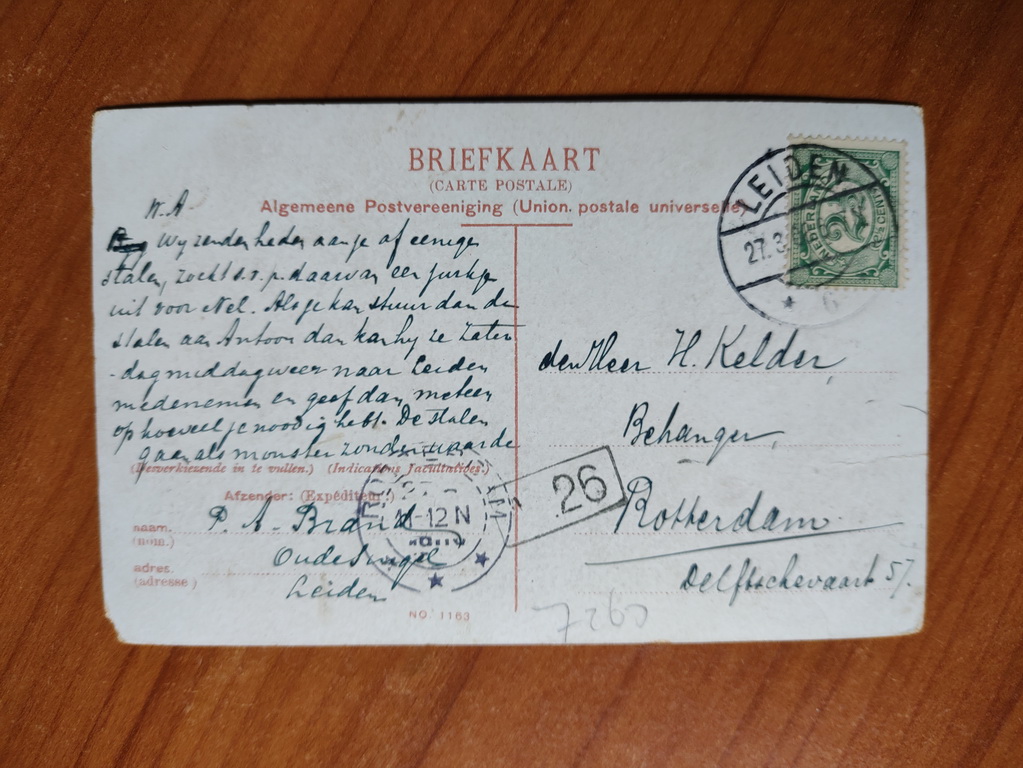 BRIEFKAART
(CARTE POSTALE)
Algemeene Postvereeniging (Union postale universelle)
W. A
Wy zenden heden aan je af eenige
stalen, zoekt s.v.p. daarvan een jurkje
uit voor Nel. Als je kan stuur dan de
stalen aan Antoon dan kan hy ze Zater
-dagmiddag weer naar Leiden
medenemen en geef dan meteen
op hoeveel je noodig hebt. De stalen
gaan als monster zonder waarde
(Desverkiezende in te vullen.) (Indications facultatives.)
Afzender: (Expéditeur:)
naam.
(nom.)
P. A. Brand
Oude Singel
adres.
(adresse)
Leiden
NO. 1163
LEIDEN
27.3
6
NEDERLAND
2½
2½ CENT
den Heer H. Kelder,
Behanger,
Rotterdam
Delftschevaart 57.
26
ROTTERDAM
11-12 N
7260